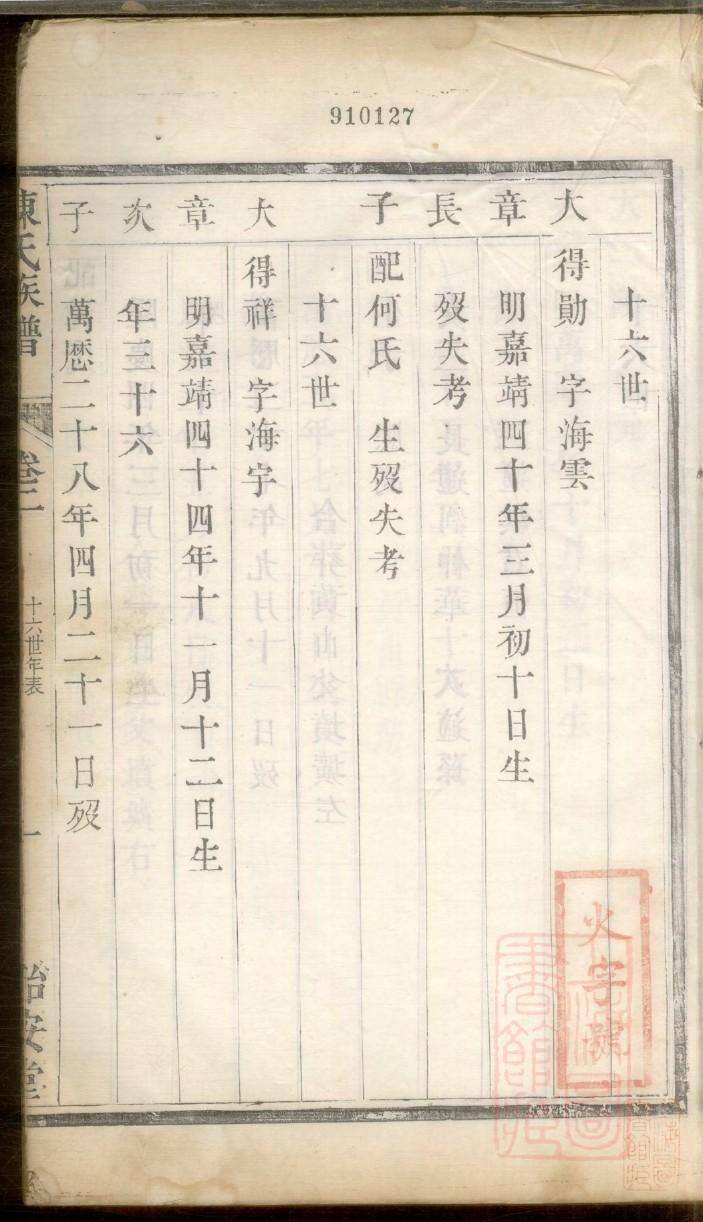 910127
十六世
大 得勛 字海雲
章 明嘉靖四十年三月初十日生
長 歿失考
子 配何氏 生歿失考
十六世
大 得祥 字海宇
章 明嘉靖四十四年十一月十二日生
次 年三十六
子 萬厯二十八年四月二十一日歿
陳氏族譜 卷二 十六世年表 一 治安堂
火字號